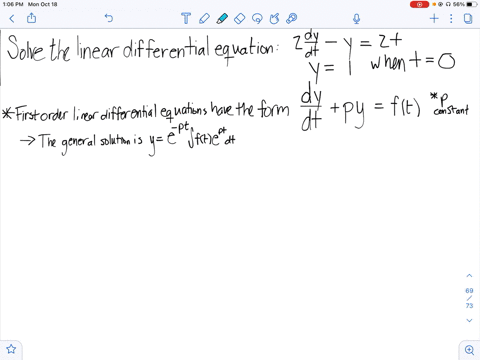 1:06 PM Mon Oct 18
56%
Solve the linear differential equation: 2 dy/dt - y = 2t
y = 1 when t = 0
* First order linear differential equations have the form dy/dt + py = f(t) * p constant
→ The general solution is y = e^-pt ∫ f(t) e^pt dt
69
/
73